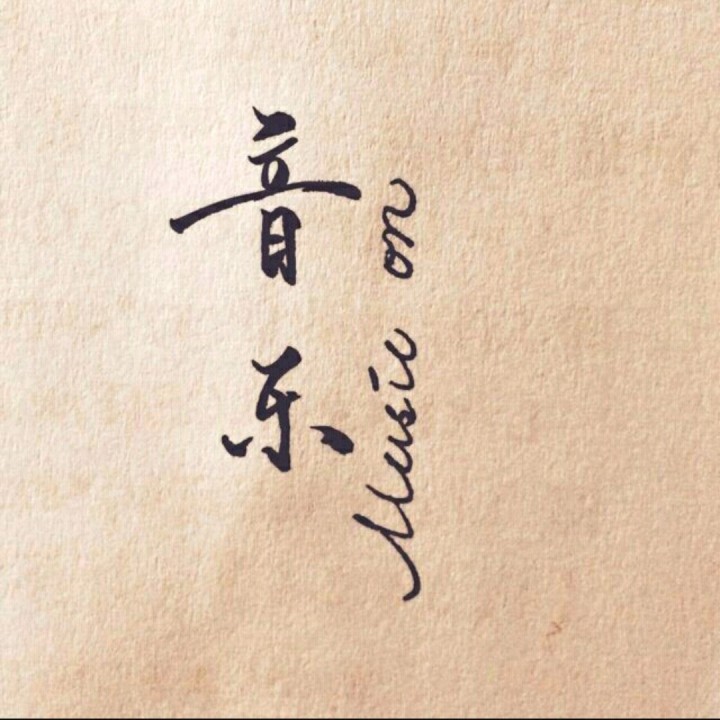 音乐
Music on